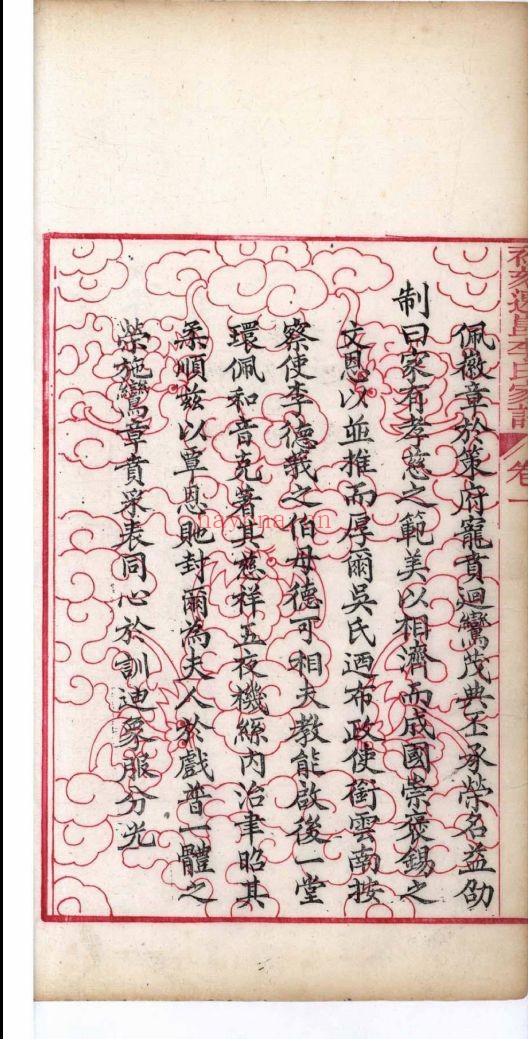 佩徽章於策府寵賁迴鸞茂典丕承榮名益劭
制曰家有孝慈之範美以相濟而成國崇褒錫之
文恩以並推而厚爾吳氏迺布政使銜雲南按
察使李德莪之伯母德可相夫教能啟後一堂
環佩和音克著其應祥五夜機絲內治聿昭其
柔順茲以覃恩貤封爾為夫人於戲普一體之
榮施鸞章賁采表同心於訓迪象服分光